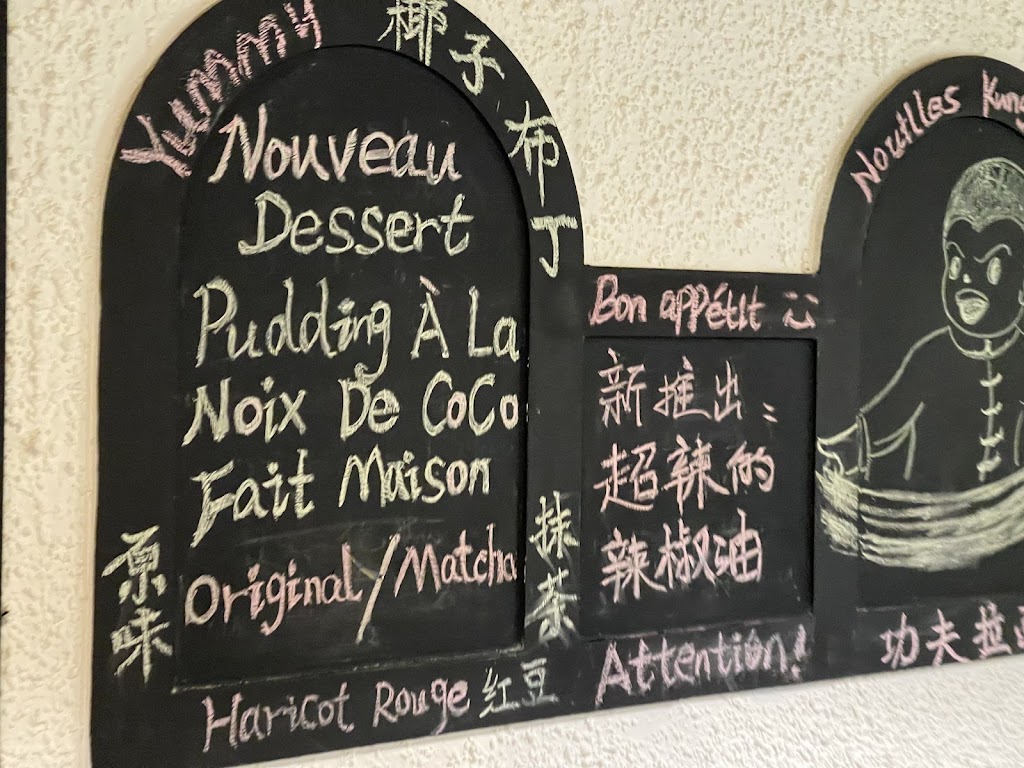 Yummy
椰子布丁
Nouveau
Dessert
Pudding À La
Noix De CoCo
Fait Maison
Original/Matcha
原味
抹茶
Haricot Rouge 红豆
Bon appétit
新推出:
超辣的
辣椒油
Attention!
Noutlles Kung
功夫拉